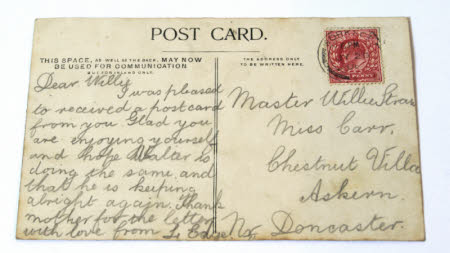 POST CARD.
THIS SPACE, AS WELL AS THE BACK, MAY NOW
BE USED FOR COMMUNICATION
THE ADDRESS ONLY
TO BE WRITTEN HERE.
Dear Willy
I was pleased
to received a postcard
from you. Glad you
are enjoying yourself
and hope Walter is
doing the same, and
that he is keeping
alright again. Thank
mother for the letter
with love from
Master Willie
Miss Carr,
Chestnut Villa
Askern.
Nr Doncaster.
PENNY